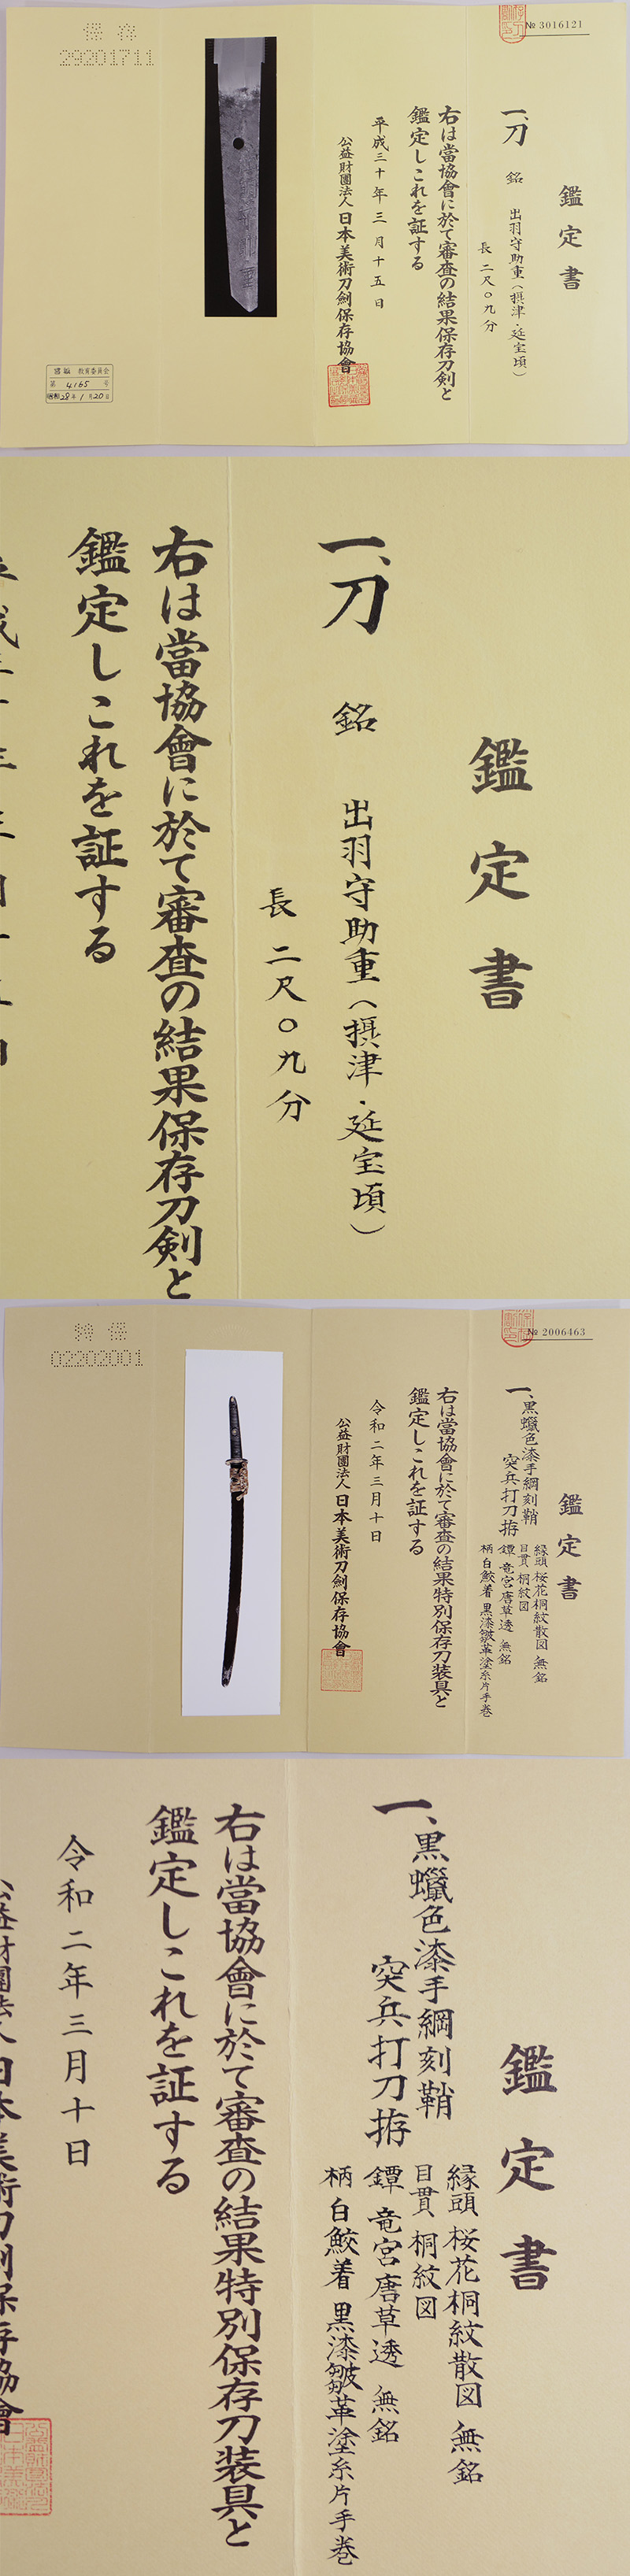 № 3016121
鑑定書
一、刀 銘 出羽守助重(摂津・延宝頃)
長 二尺〇九分
右は當協會に於て審査の結果保存刀剣と
鑑定しこれを証する
平成三十年三月十五日
公益財團法人 日本美術刀劍保存協會
保存
29201711
教育委員会
第 4165 号
昭和28年1月20日
鑑定書
一、刀 銘 出羽守助重(摂津・延宝頃)
長 二尺〇九分
右は當協會に於て審査の結果保存刀剣と
鑑定しこれを証する
№ 2006463
鑑定書
一、黒蠟色漆手綱刻鞘
突兵打刀拵
縁頭 桜花桐紋散図 無銘
目貫 桐紋図
鐔 竜宮唐草透 無銘
柄 白鮫着 黒漆皺革塗糸片手巻
右は當協會に於て審査の結果特別保存刀装具と
鑑定しこれを証する
令和二年三月十日
公益財團法人 日本美術刀劍保存協會
特保
02202001
鑑定書
一、黒蠟色漆手綱刻鞘
突兵打刀拵
縁頭 桜花桐紋散図 無銘
目貫 桐紋図
鐔 竜宮唐草透 無銘
柄 白鮫着 黒漆皺革塗糸片手巻
右は當協會に於て審査の結果特別保存刀装具と
鑑定しこれを証する
令和二年三月十日
公益財團法人 日本美術刀劍保存協會